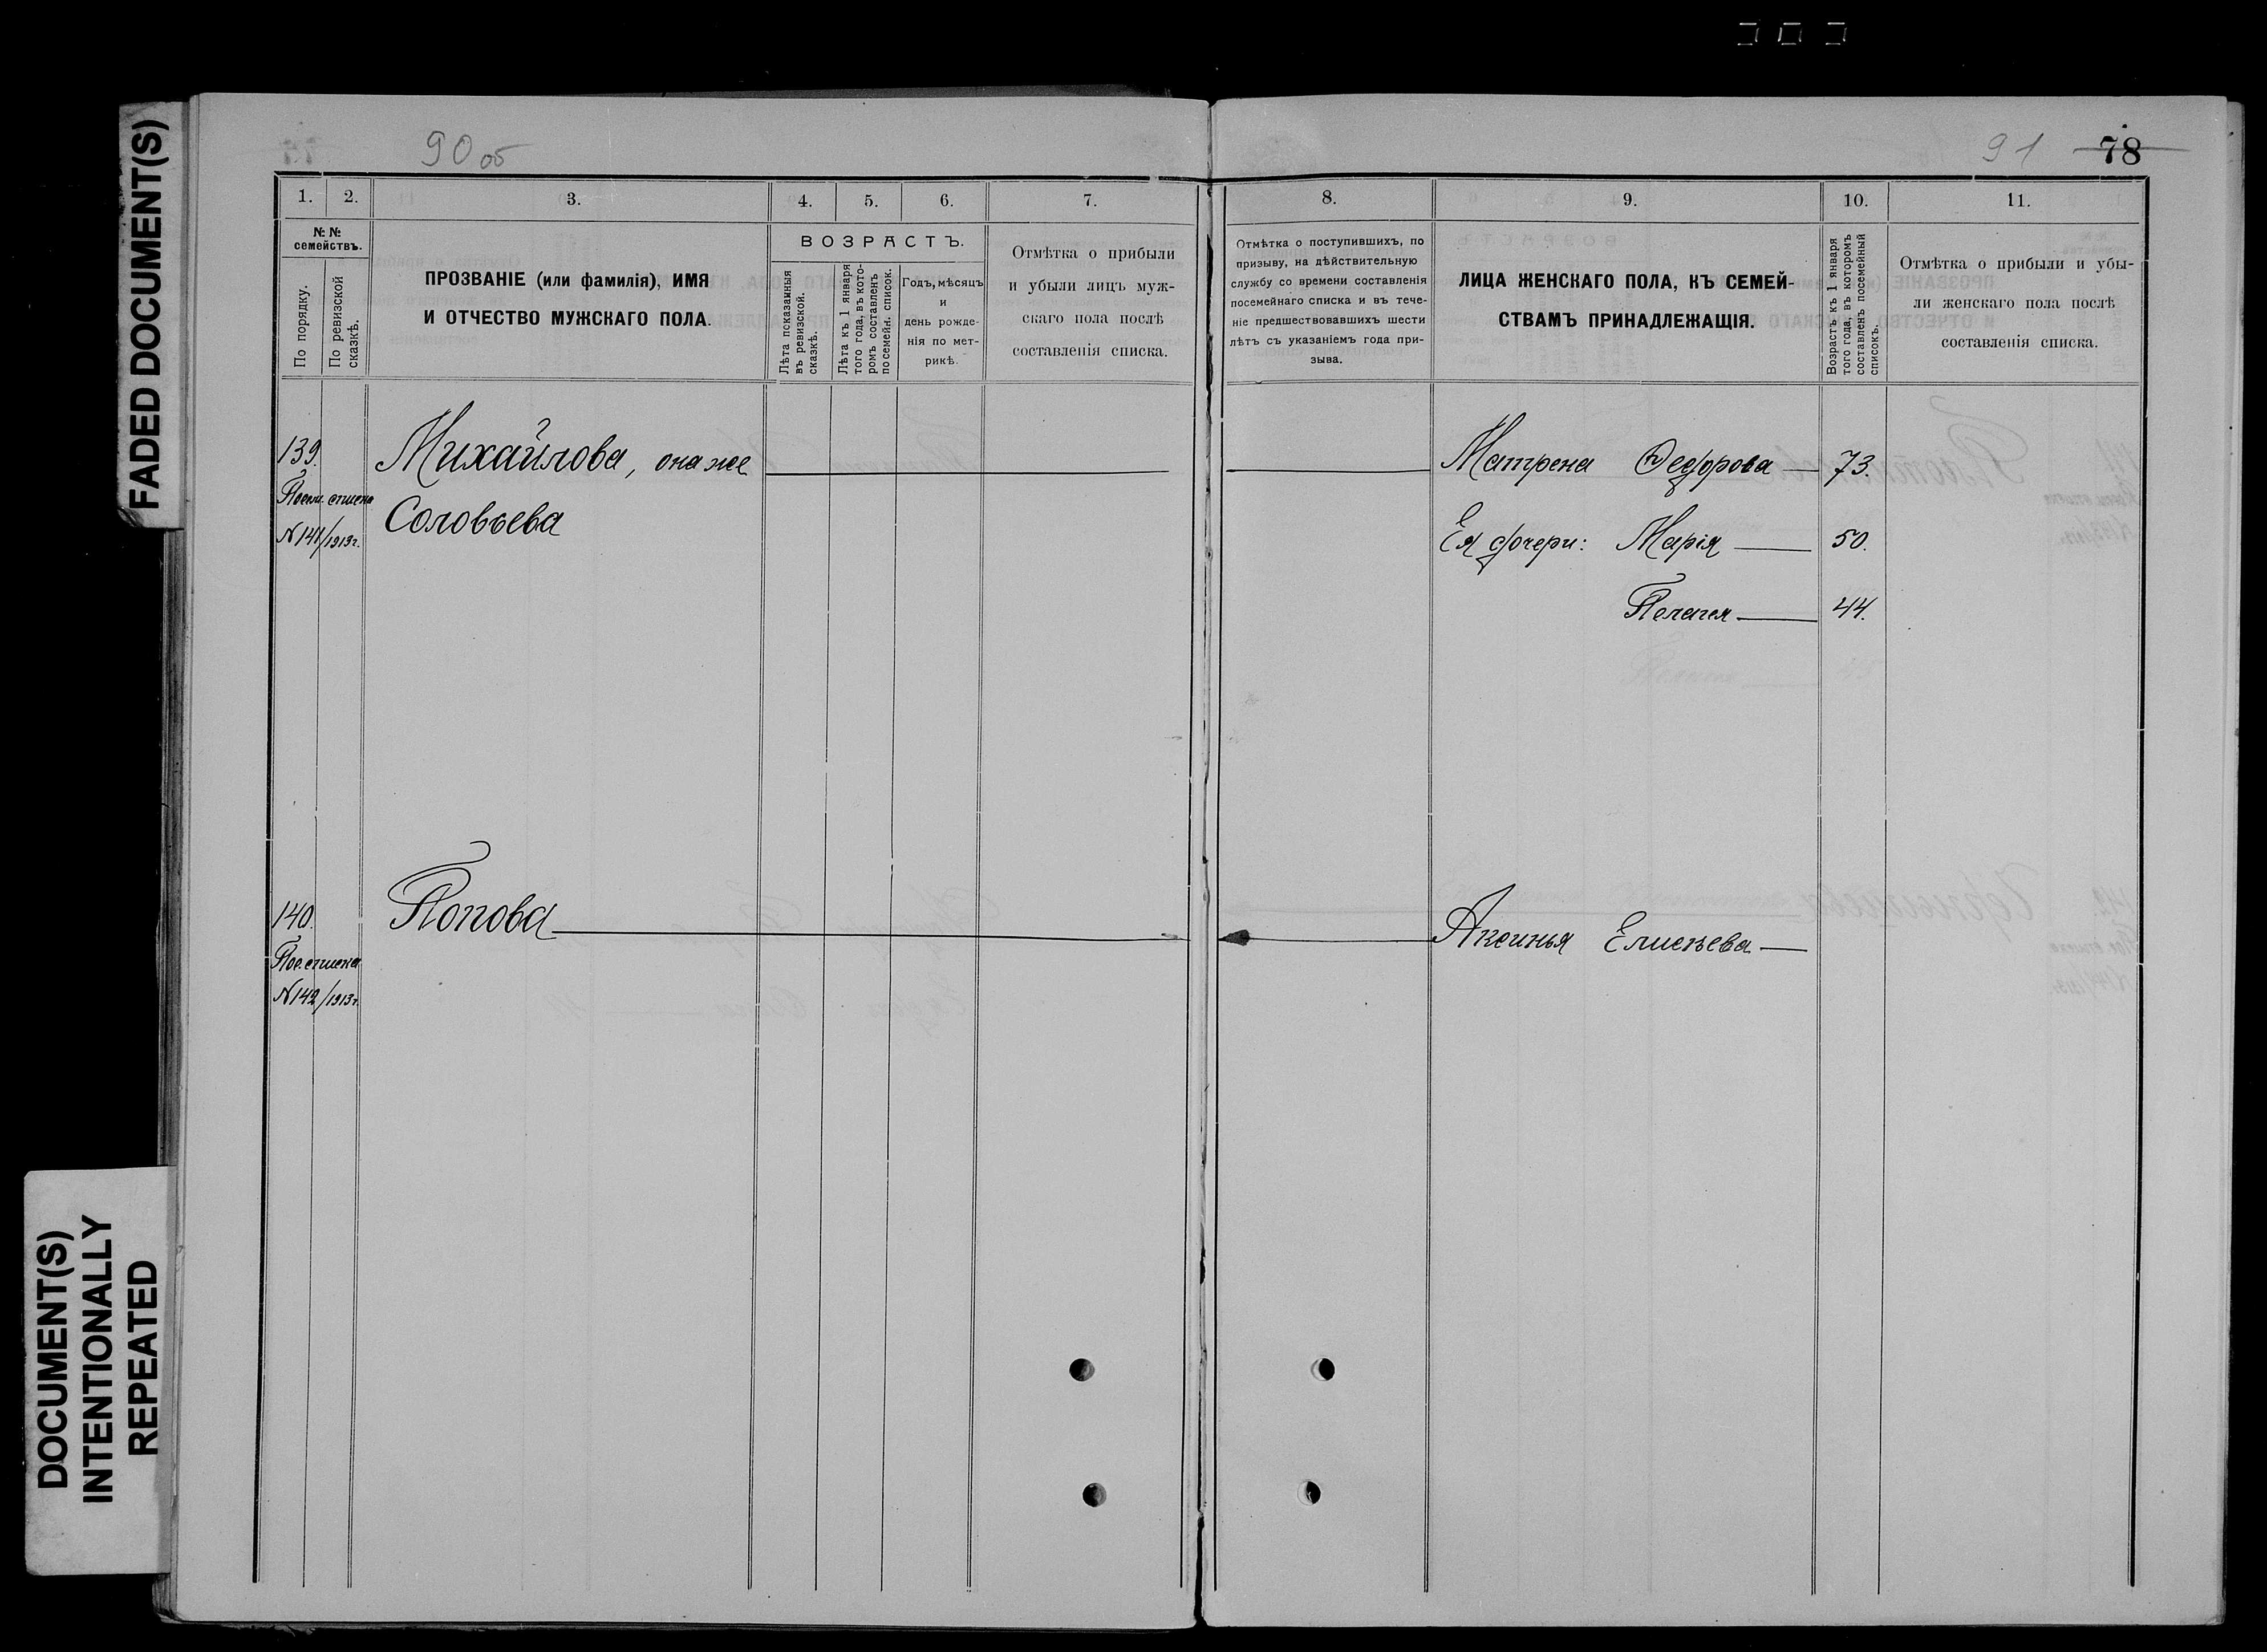 FADED DOCUMENT(S)
DOCUMENT(S)
INTENTIONALLY
REPEATED
90 об
1. 2. 3. 4. 5. 6. 7.
№ №
семействъ.
По порядку.
По ревизской
сказкѣ.
ПРОЗВАНІЕ (или фамилія), ИМЯ
И ОТЧЕСТВО МУЖСКАГО ПОЛА.
ВОЗРАСТЪ.
Лѣта показанныя
въ ревизской.
сказкѣ.
Лѣта къ 1 января
того года, въ кото-
ромъ составленъ
посемейн. список.
Годъ, мѣсяцъ
и
день рожде-
нія по мет-
рикѣ.
Отмѣтка о прибыли
и убыли лицъ муж-
скаго пола послѣ
составленія списка.
139. Михайлова, она же
Посем. списка
Соловьева
N 141/1913г.
140. Попова
Пос. списка
N 142/1913г.
91 78
8. 9. 10. 11.
Отмѣтка о поступившихъ, по
призыву, на дѣйствительную
службу со времени составленія
посемейнаго списка и въ тече-
ніе предшествовавшихъ шести
лѣтъ съ указаніемъ года при-
зыва.
ЛИЦА ЖЕНСКАГО ПОЛА, КЪ СЕМЕЙ-
СТВАМЪ ПРИНАДЛЕЖАЩІЯ.
Возрастъ къ 1 января
того года, въ которомъ
составленъ посемейный
списокъ.
Отмѣтка о прибыли и убы-
ли женскаго пола послѣ
составленія списка.
Матрена Ѳедорова 73.
Ея дочери: Марія 50.
Пелагея 44.
Аксинья Елисѣева